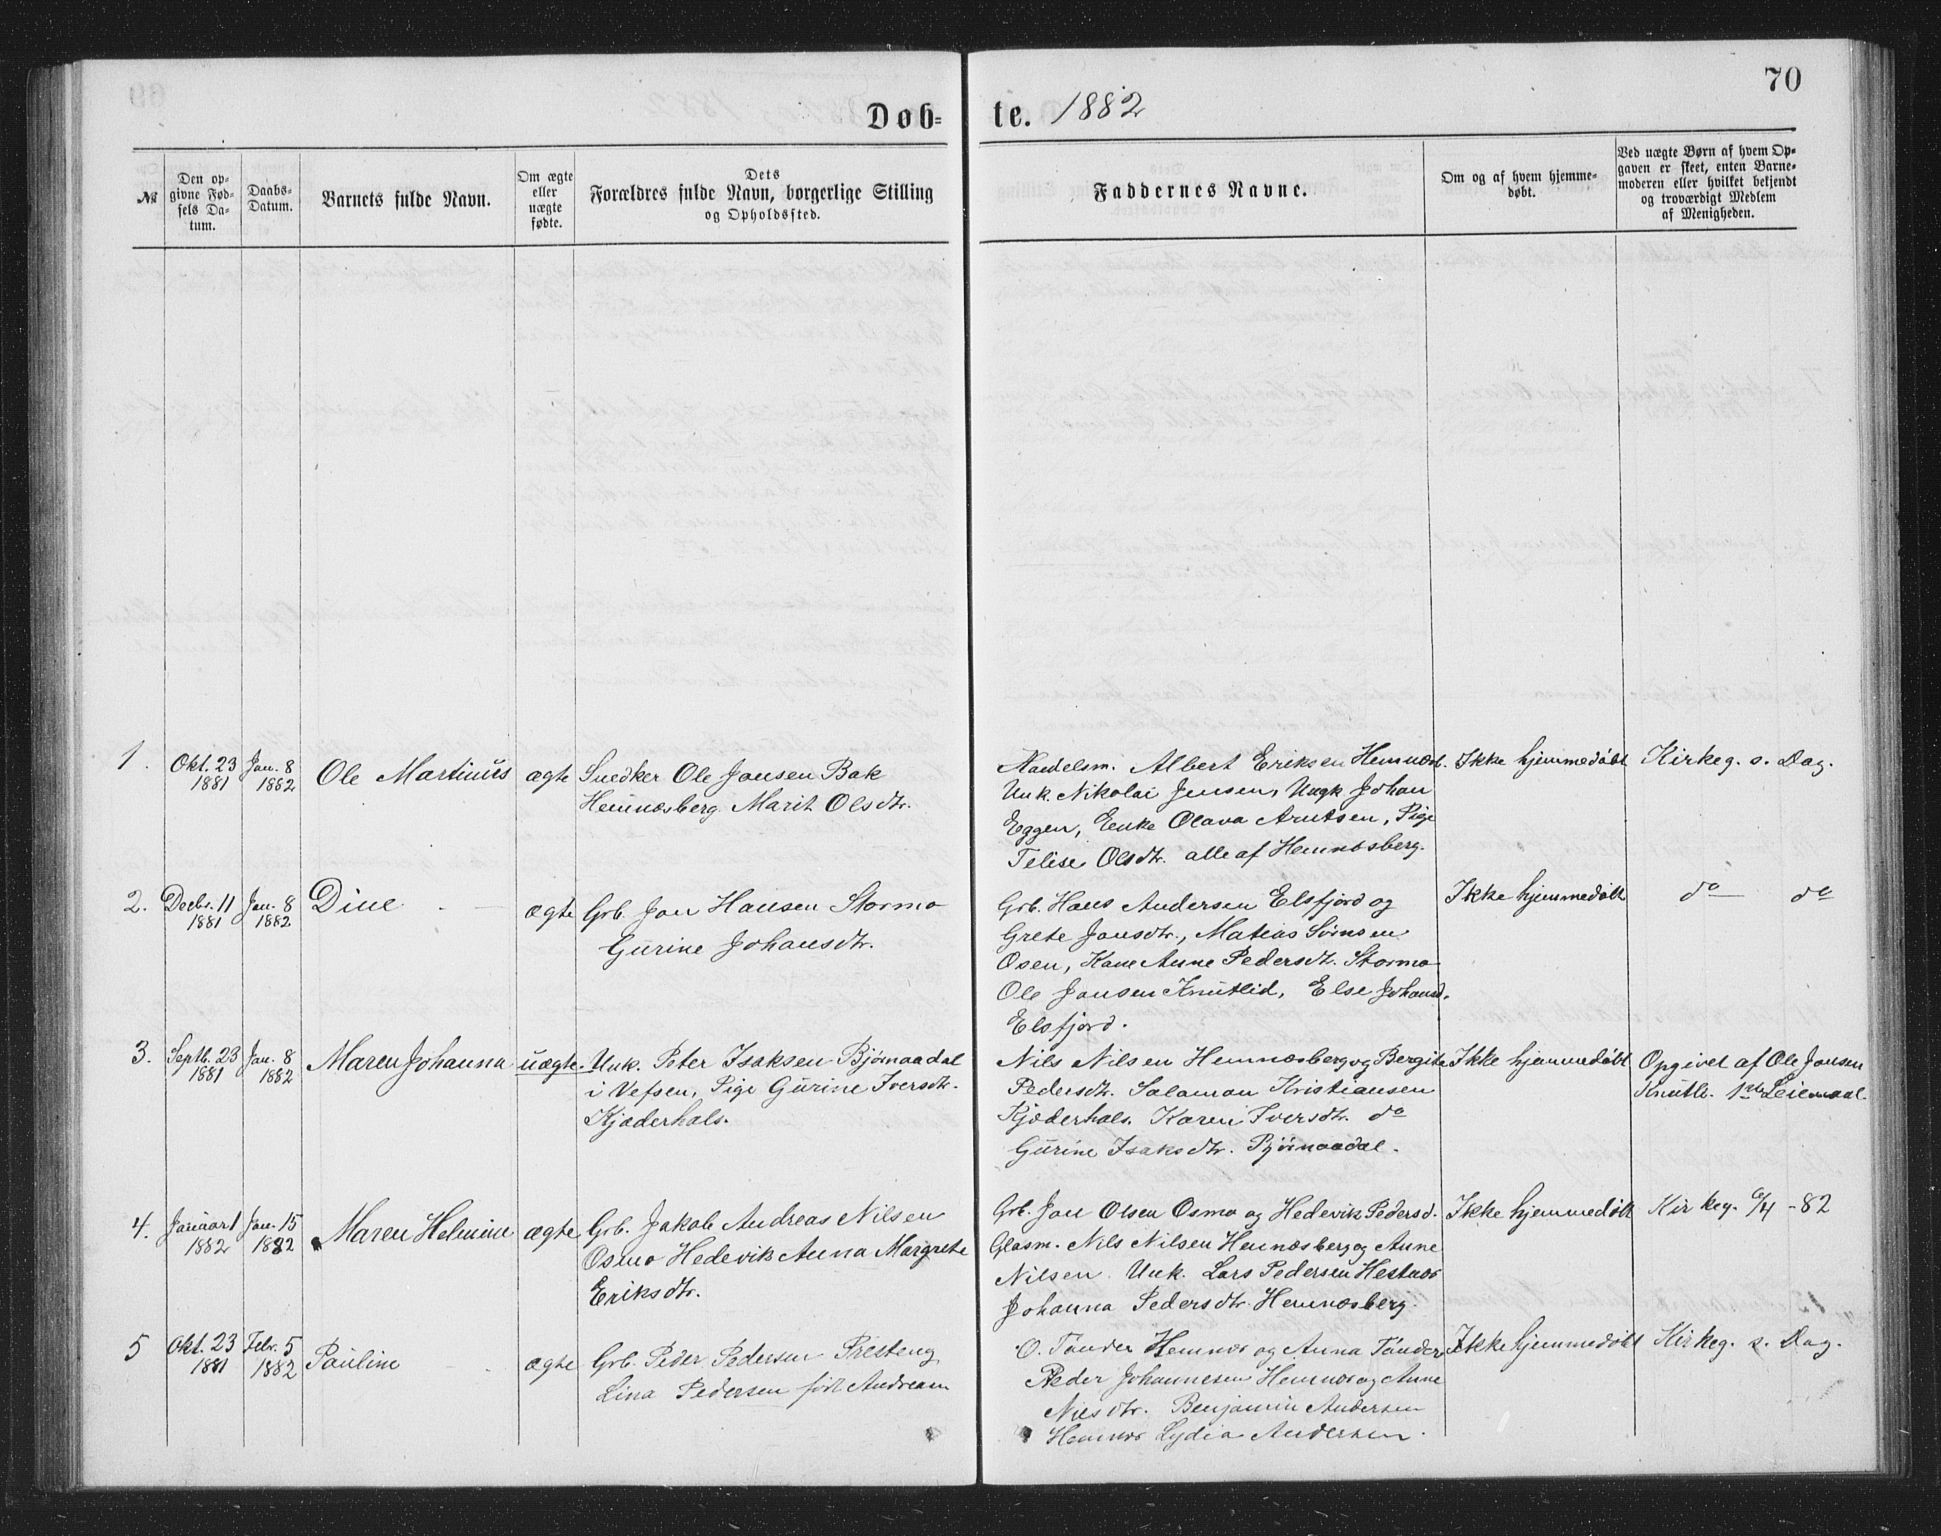 70
Døb-te. 1882
№
Den op-
givne Fød-
sels Da-
tum.
Daabs-
Datum.
Barnets fulde Navn.
Om ægte
eller
uægte
fødte.
Dets
Forældres fulde Navn, borgerlige Stilling
og Opholdssted.
Faddernes Navne.
Om og af hvem hjemme-
døbt.
Ved uægte Børn af hvem Op-
gaven er skeet, enten Barne-
moderen eller hvilket betjendt
og troværdigt Medlem
af Menigheden.
1.
Okt. 23
1881
Jan. 8
1882
Ole Martinus
ægte
Snedker Ole Jansen Bak
Hemnæsberg Marit Olsdtr.
Handelsm. Albert Eriksen Hemnæsb.
Unk. Nikolai Jensen, Ungk. Johan
Eggen, Enke Olava Arntsen, Pige
Telise Olsdtr. alle af Hemnæsberg.
Ikke hjemmedøbt
Kirkeg. s. Dag.
2.
Decbr. 11
1881
Jan. 8
1882
Dine
ægte
Grb. Jan Hansen Stormo
Gurine Johansdtr.
Grb. Hans Andersen Elsfjord og
Grete Jansdtr., Mateas Sørnsen
Osen, Kone Anne Pedersdt. Stormo
Ole Jansen Knutlid, Else Johansd.
Elsfjord.
Ikke hjemmedøbt
do do
3.
Septb. 23
1881
Jan. 8
1882
Maren Johanna
uægte
Unk. Peter Isaksen Bjørnaadal
i Vefsen, Pige Gurine Iversdtr.
Kjæderhals.
Nils Nilsen Hemnæsberg og Bergite
Pedersdtr. Salamon Kristiansen
Kjæderhals. Karen Iversdtr. do
Gurine Isaksdtr. Bjørnaadal.
Ikke hjemmedøbt
Opgivet af Ole Jansen
Knutli. 1ste Leiemaal.
4.
Januar 1
1882
Jan. 15
1882
Maren Helmine
ægte
Grb. Jakob Andreas Nilsen
Osmo Hedevik Anna Margrete
Eriksdtr.
Grb. Jan Olsen Osmo og Hedevik Pedersd.
Glasm. Nils Nilsen Hemnæsberg og Anne
Nilsen. Unk. Lars Pedersen Hestnæs
Johanna Pedersdtr. Hemnæsberg.
Ikke hjemmedøbt
Kirkeg. 6/4 -82
5
Okt. 23
1881
Febr. 5
1882
Pauline
ægte
Grb. Peder Pedersen Presteng
Lina Pedersen født Andreasen
O. Tønder Hemnæs og Anna Tønder
Peder Johannesen Hemnæs og Anne
Nilsdtr. Benjamin Andersen
Hemnæs Lydia Andersen.
Ikke hjemmedøbt
Kirkeg. s. Dag.